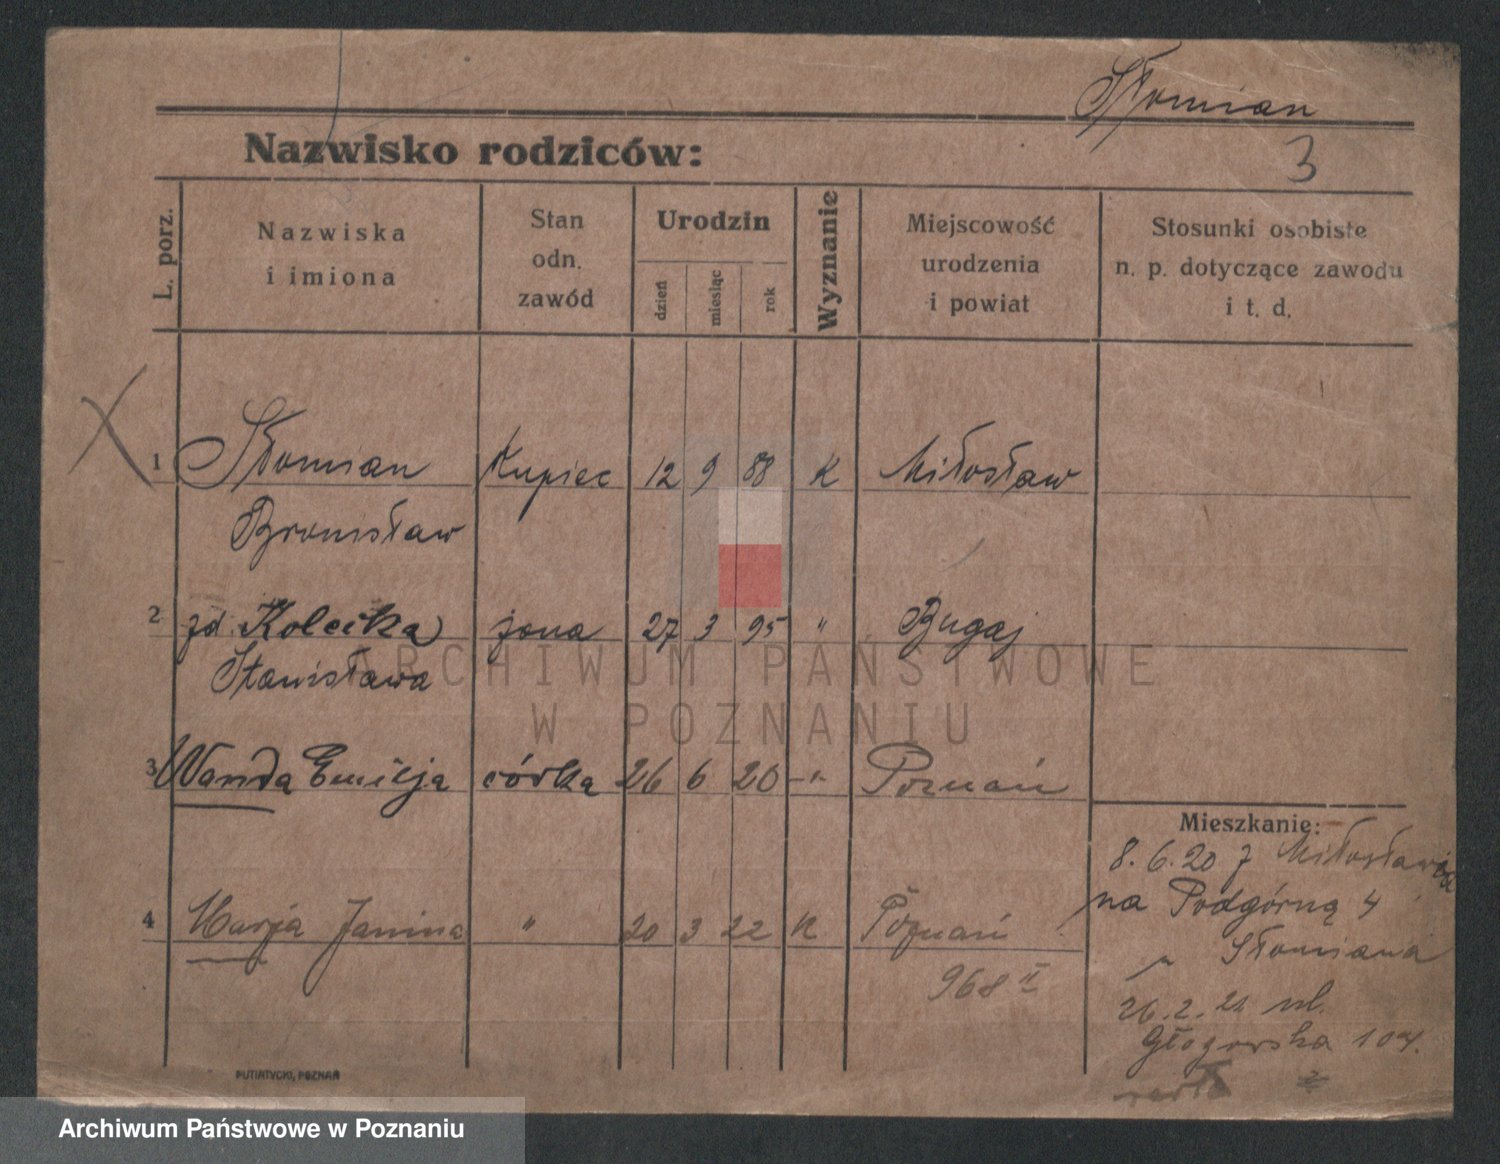 Słomian
Nazwisko rodziców:
3
L. porz.
Nazwiska
i imiona
Stan
odn.
zawód
Urodzin
dzień
miesiąc
rok
Wyznanie
Miejscowość
urodzenia
i powiat
Stosunki osobiste
n. p. dotyczące zawodu
i t. d.
1 Słomian Kupiec 12 9 88 K Miłosław
Bronisław
2 zd. Koleika żona 27 3 95 " Bugaj
Stanisława
ARCHIWUM PAŃSTWOWE
W POZNANIU
3 Wanda Emilja córka 26 6 20 -"- Poznań
Mieszkanie:
8.6.20 z Miłosławia
na Podgórną 4
4 Marja Janina " 20 3 22 K Poznań
Słomiana
968 II
26.2.21 ul.
Głogowska 104.
PUTIATYCKI, POZNAŃ
Archiwum Państwowe w Poznaniu